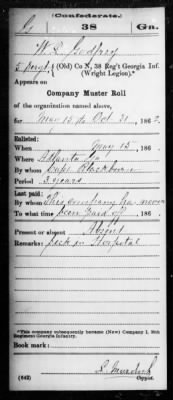 (Confederate.)
G 38 Ga.
W. L. Godfrey
5 Sergt, (Old) Co. N, 38 Reg't Georgia Inf.
(Wright Legion).*
Appears on
Company Muster Roll
of the organization named above,
for May 15 to Oct 31, 186
Enlisted:
When May 15, 186
Where Atlanta Ga
By whom Capt Blackburn
Period 3 years
Last paid:
By whom This company has never
To what time been paid off, 186
Present or absent Absent
Remarks: sick in Hospital
*This company subsequently became (New) Company I, 38th
Regiment Georgia Infantry.
Book mark:
(642) Copyist.